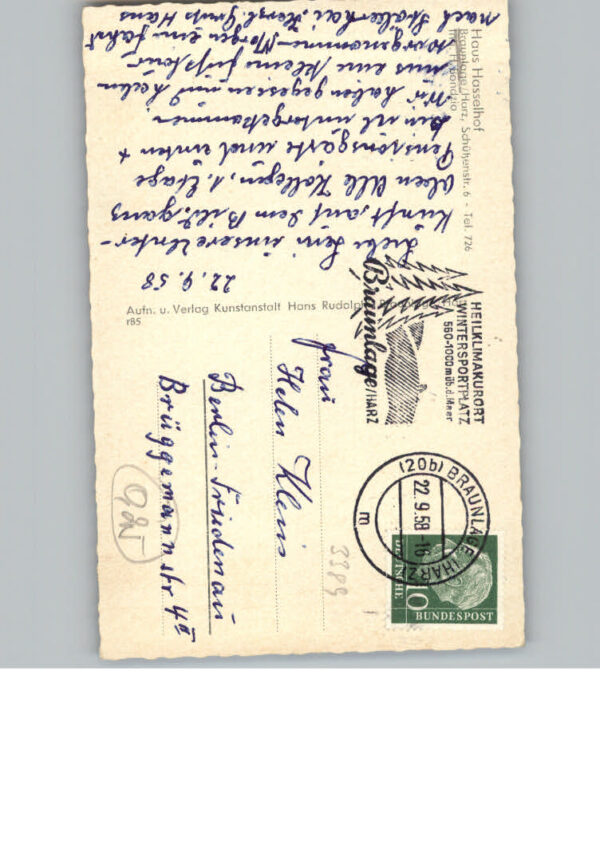 Haus Hasselhof
Braunlage/Harz, Schützenstr. 6 - Tel. 726
22.9.58
Liebe Leni unsere Unter-
kunft, auf dem Bild, ganz
oben Alle Kollegen, 1. Etage
Pensionsgäste und unten
sind untergekommen
Wir haben gegessen und haben
uns eine kleine Fußtour
vorgenommen Morgen eine Fahrt
nach Herzl. Gruß Hans
Aufn. u. Verlag Kunstanstalt Hans Rudolphi
r85
Braunlage/HARZ
HEILKLIMAKURORT
WINTERSPORTPLATZ
560-1000 m üb.d.Meer
(20b) BRAUNLAGE (HARZ)
22.9.58-16
m
DEUTSCHE
BUNDESPOST
10
Frau
Helen Klein
Berlin-Friedenau
Brüggemannstr 4 II
3389